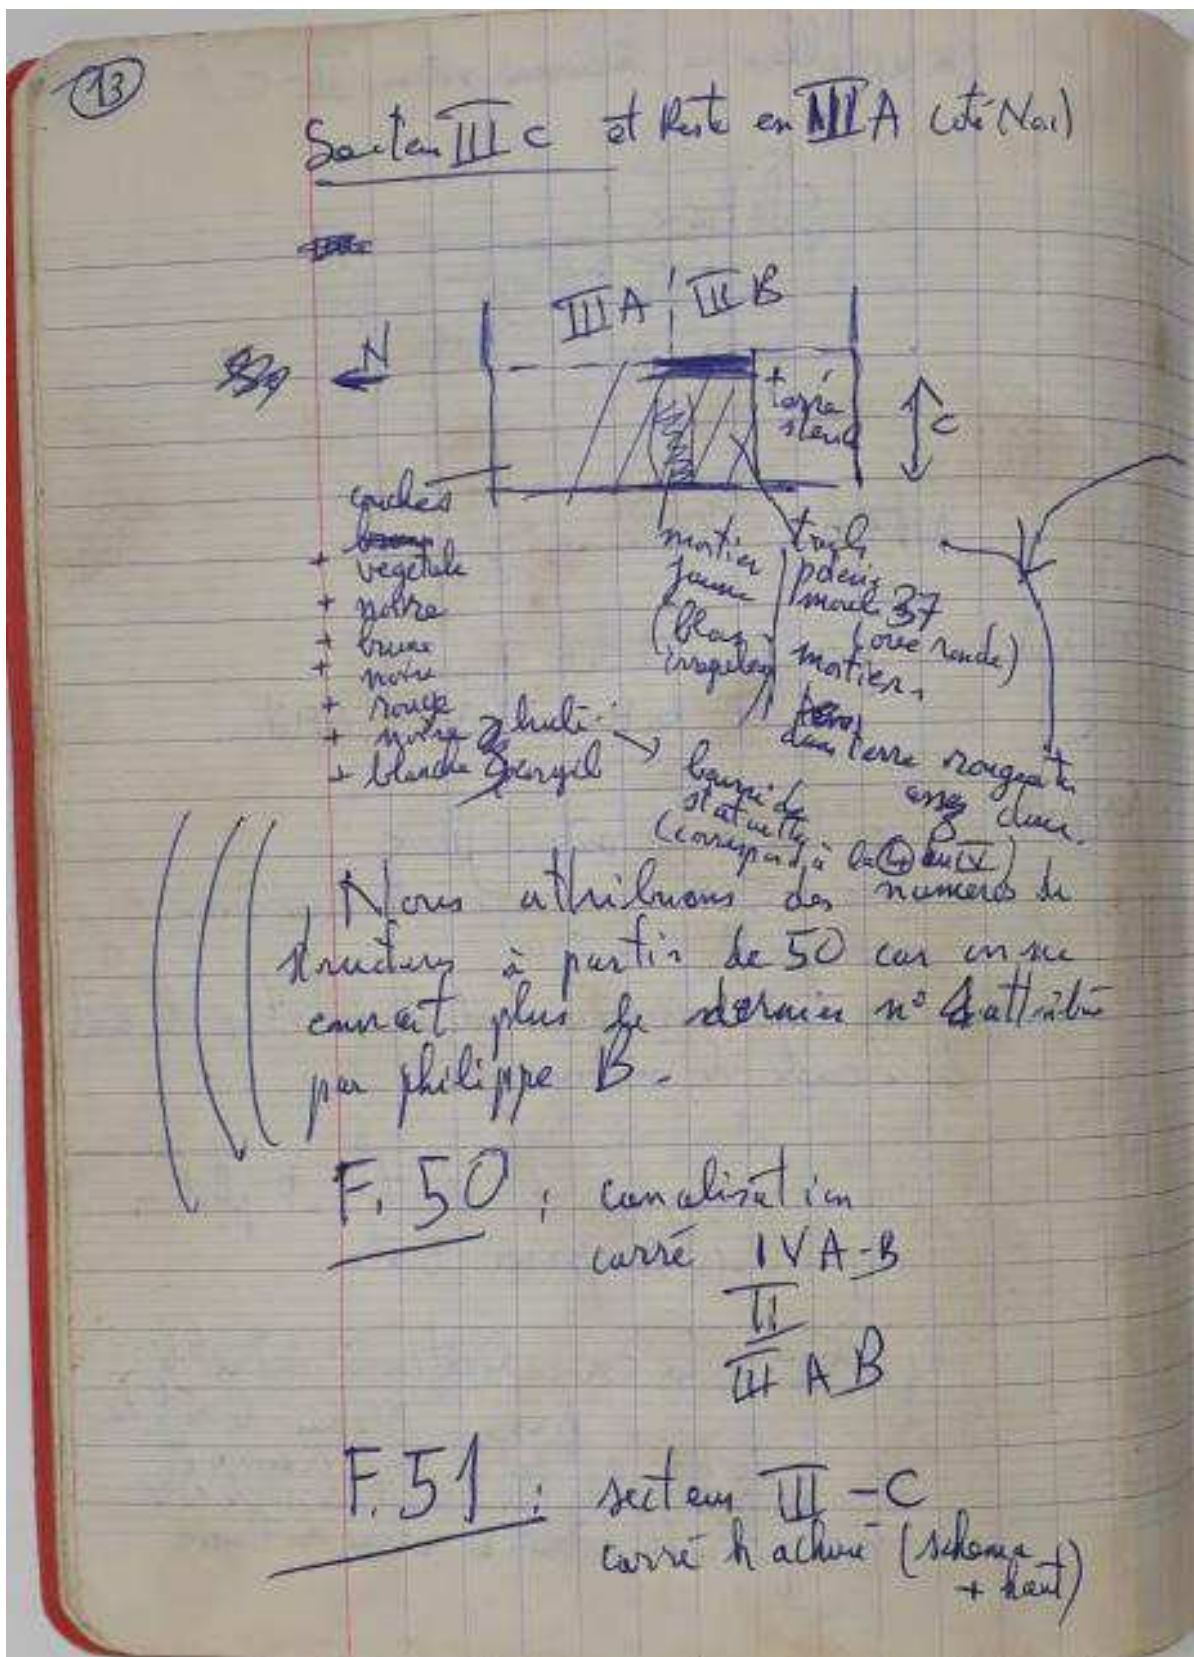 13
Secteur III C et Reste en III A (côté Nord)
III A III B
N
+ terre
stérile
C
couches
+ végétale
+ noire
+ brune
+ noire
+ rouge
+ noire
+ blanche
mortier
jaune
(blanc
irrégulier
tuile
moule 37
(ove ronde)
mortiers
dans terre rougeatre
assez
statuette
(correspond à la 4 du IV)
Nous attribuons des numeros de
structures à partir de 50 car on ne
connait plus le dernier n° attribué
par philippe B.
F. 50 : canalisation
carré IV A-B
II
III A B
F. 51 : secteur III - C
carré hachuré (schema
+ haut)